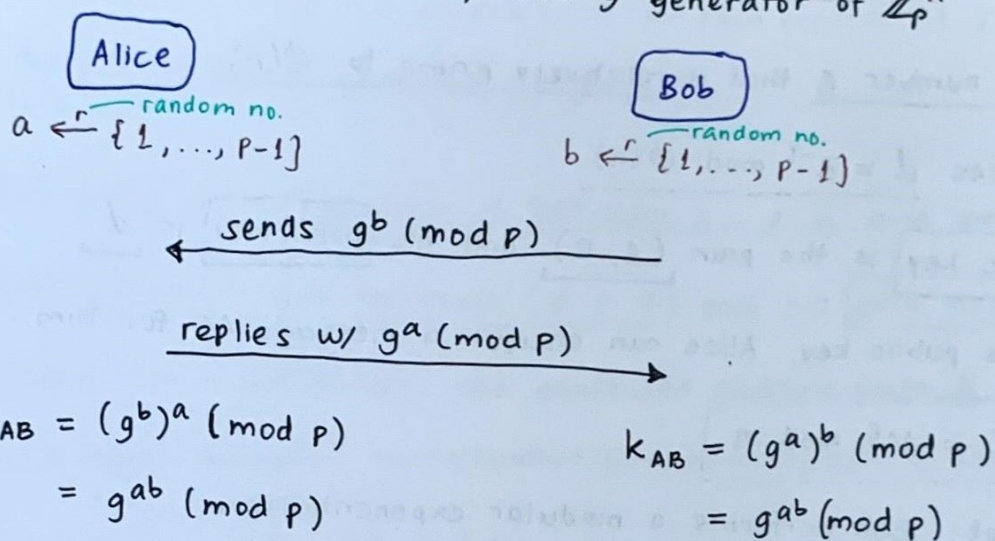 generator of ℤp*
Alice
random no.
a ←r {1, ..., p-1}
Bob
random no.
b ←r {1, ..., p-1}
sends g^b (mod p)
replies w/ g^a (mod p)
AB = (g^b)^a (mod p)
= g^ab (mod p)
k_AB = (g^a)^b (mod p)
= g^ab (mod p)